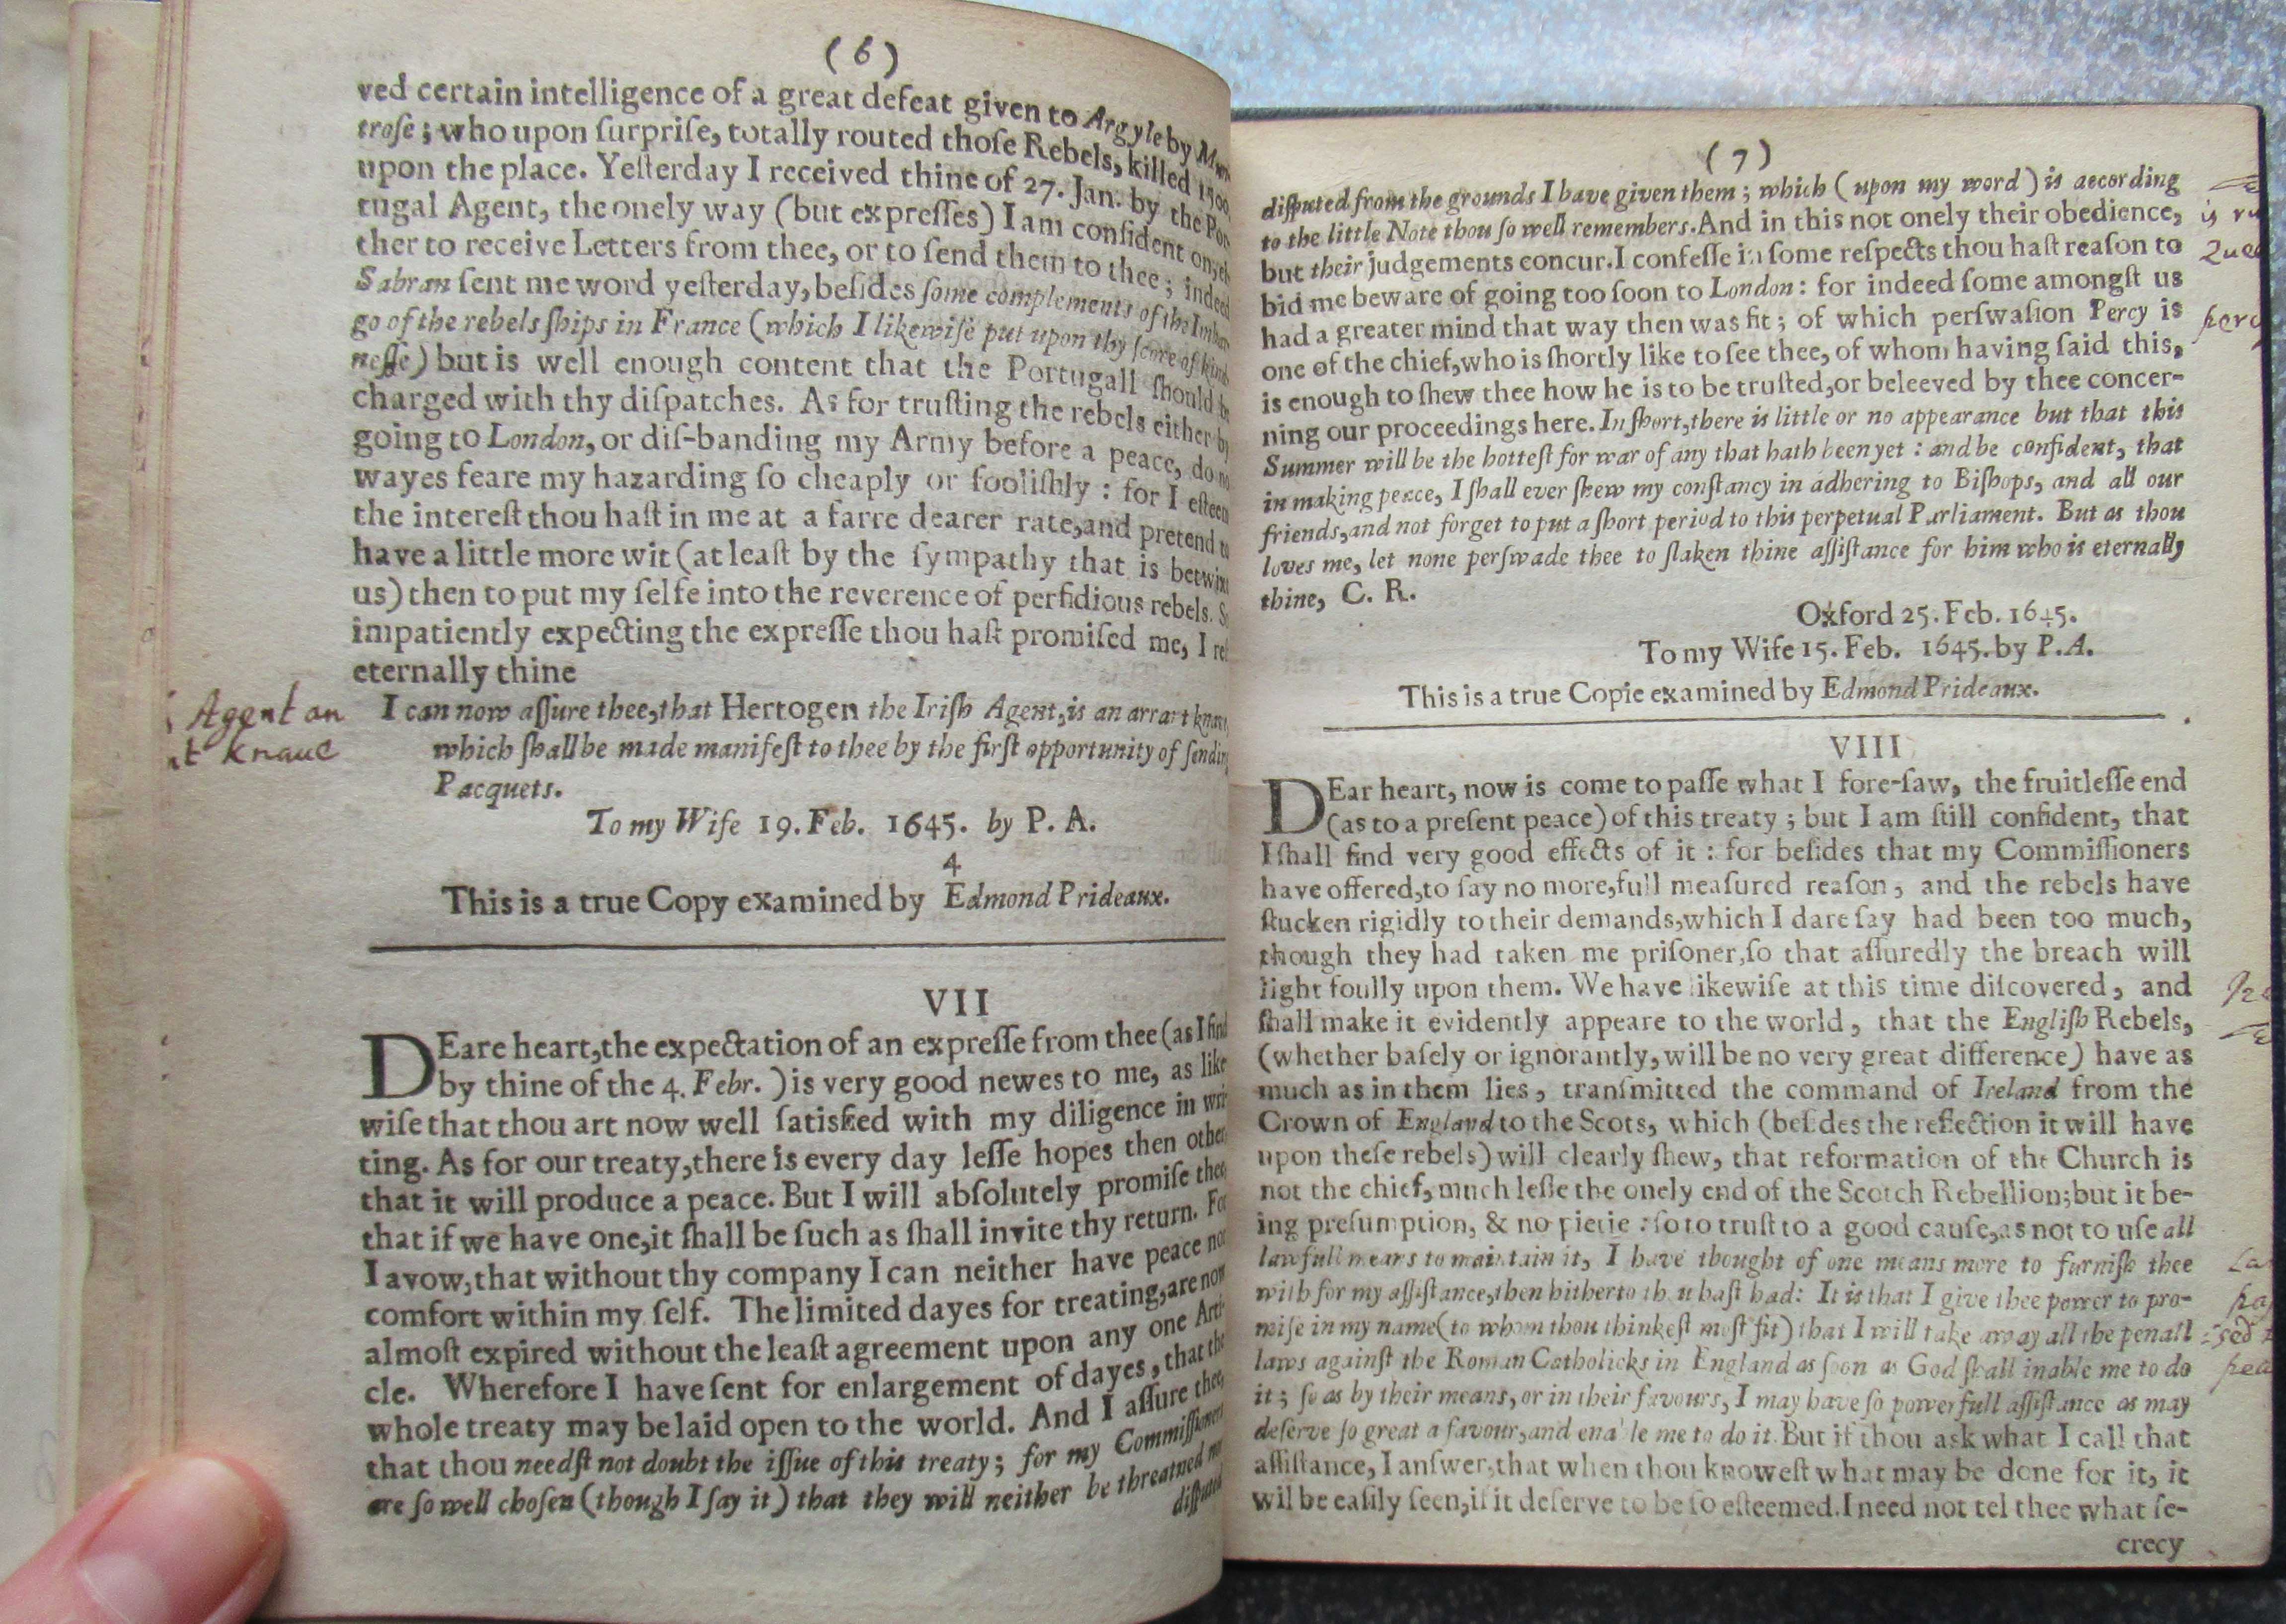 (6)
ved certain intelligence of a great defeat given to Argyle by
trose; who upon ſurpriſe, totally routed thoſe Rebels, killed 1500,
upon the place. Yeſterday I received thine of 27. Jan. by the Por
tugal Agent, the onely way (but expreſſes) I am confident on,
ther to receive Letters from thee, or to ſend them to thee; indeed
Sabran ſent me word yeſterday, beſides ſome complements of the
go of the rebels ſhips in France (which I likewiſe put upon thy ſcore of kind
neſſe) but is well enough content that the Portugall ſhould be
charged with thy diſpatches. As for truſting the rebels either by
going to London, or diſ-banding my Army before a peace, do no
wayes feare my hazarding ſo cheaply or fooliſhly : for I eſteem
the intereſt thou haſt in me at a farre dearer rate, and pretend to
have a little more wit (at leaſt by the ſympathy that is betwixt
us) then to put my ſelfe into the reverence of perfidious rebels. So
impatiently expecting the expreſſe thou haſt promiſed me, I re
eternally thine
Agent an
knave
I can now aſſure thee, that Hertogen the Iriſh Agent, is an arrart knave
which ſhall be made manifeſt to thee by the firſt opportunity of ſending
Pacquets.
To my Wife 19. Feb. 1645. by P. A.
4
This is a true Copy examined by Edmond Prideaux.
VII
DEare heart, the expectation of an expreſſe from thee (as I find
by thine of the 4. Febr. ) is very good newes to me, as like
wiſe that thou art now well ſatisfied with my diligence in wri
ting. As for our treaty, there is every day leſſe hopes then other
that it will produce a peace. But I will abſolutely promiſe thee,
that if we have one, it ſhall be ſuch as ſhall invite thy return. For
I avow, that without thy company I can neither have peace nor
comfort within my ſelf. The limited dayes for treating, are now
almoſt expired without the leaſt agreement upon any one Arti-
cle. Wherefore I have ſent for enlargement of dayes, that the
whole treaty may be laid open to the world. And I aſſure thee,
that thou needſt not doubt the iſſue of this treaty; for my Commiſſioners
are ſo well choſen (though I ſay it) that they will neither be threatned nor
diſputed
(7)
diſputed from the grounds I have given them; which (upon my word) is according
to the little Note thou ſo well remembers. And in this not onely their obedience,
but their judgements concur. I confeſſe in ſome reſpects thou haſt reaſon to
bid me beware of going too ſoon to London: for indeed ſome amongſt us
had a greater mind that way then was fit; of which perſwaſion Percy is
one of the chief, who is ſhortly like to ſee thee, of whom having ſaid this,
is enough to ſhew thee how he is to be truſted, or beleeved by thee concer-
ning our proceedings here. In ſhort, there is little or no appearance but that this
Summer will be the hotteſt for war of any that hath been yet : and be confident, that
in making peace, I ſhall ever ſhew my conſtancy in adhering to Biſhops, and all our
friends, and not forget to put a ſhort period to this perpetual Parliament. But as thou
loves me, let none perſwade thee to ſlaken thine aſſiſtance for him who is eternally
thine, C. R.
Oxford 25. Feb. 1645.
To my Wife 15. Feb. 1645. by P. A.
This is a true Copie examined by Edmond Prideaux.
VIII
DEar heart, now is come to paſſe what I fore-ſaw, the fruitleſſe end
(as to a preſent peace) of this treaty; but I am ſtill confident, that
I ſhall find very good effects of it : for beſides that my Commiſſioners
have offered, to ſay no more, full meaſured reaſon, and the rebels have
ſtucken rigidly to their demands, which I dare ſay had been too much,
though they had taken me priſoner, ſo that aſſuredly the breach will
light foully upon them. We have likewiſe at this time diſcovered, and
ſhall make it evidently appeare to the world, that the Engliſh Rebels,
(whether baſely or ignorantly, will be no very great difference) have as
much as in them lies, tranſmitted the command of Ireland from the
Crown of England to the Scots, which (beſides the reflection it will have
upon theſe rebels) will clearly ſhew, that reformation of the Church is
not the chief, much leſſe the onely end of the Scotch Rebellion; but it be-
ing preſumption, & no pietie : ſo to truſt to a good cauſe, as not to uſe all
lawfull means to maintain it, I have thought of one means more to furniſh thee
with for my aſſiſtance, then hitherto thou haſt had: It is that I give thee power to pro-
miſe in my name (to whom thou thinkeſt moſt fit) that I will take away all the penall
laws againſt the Roman Catholicks in England as ſoon as God ſhall inable me to do
it; ſo as by their means, or in their favours, I may have ſo powerfull aſſiſtance as may
deſerve ſo great a favour, and enable me to do it. But if thou ask what I call that
aſſiſtance, I anſwer, that when thou knoweſt what may be done for it, it
wil be eaſily ſeen, if it deſerve to be ſo eſteemed. I need not tel thee what ſe-
crecy